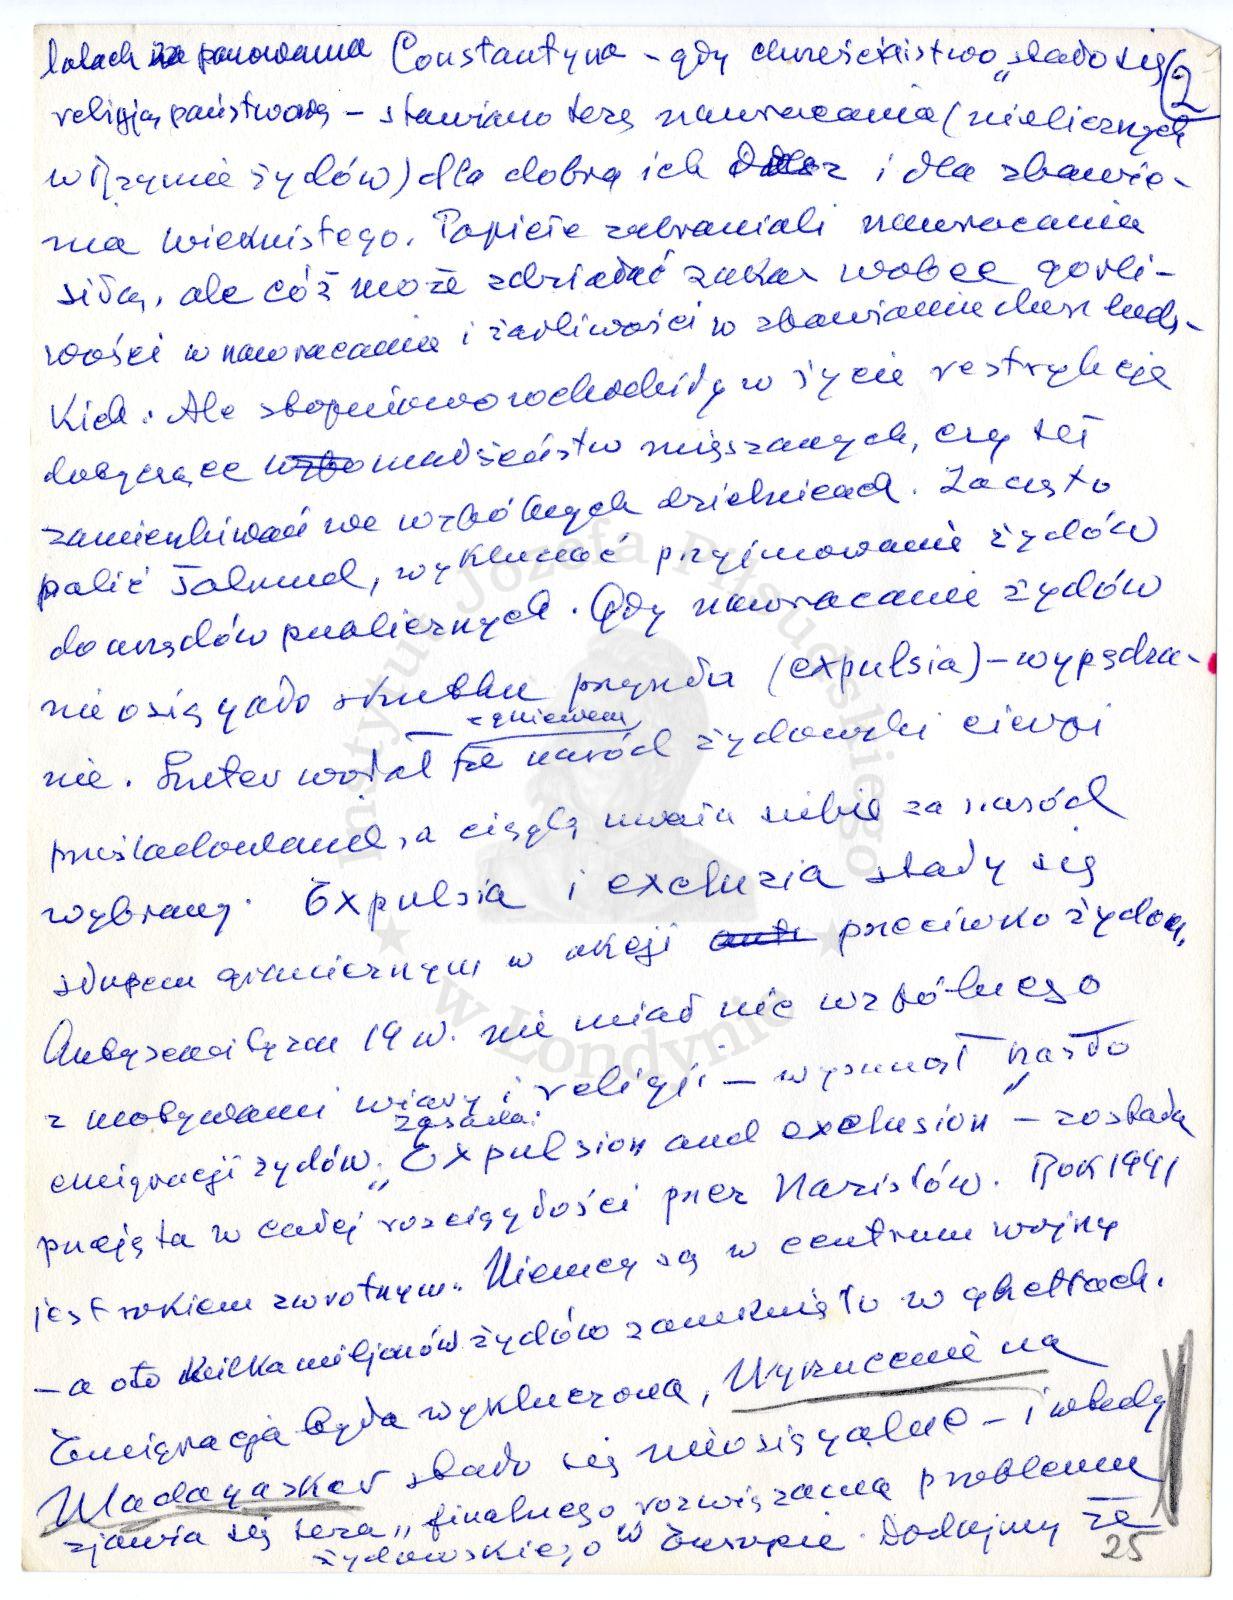 latach za panowania Constantyna – gdy chrześcijaństwo „stało się 2
religją państwową – stawiano tezę nawracania (nielicznych
w Rzymie żydów) dla dobra ich dusz i dla zbawie-
nia wieknistego. Papieże zabraniali nawracania
siłą, ale cóż może zdziałać zakaz wobec gorli-
wości w nawracaniu i żarliwości w zbawianiu dusz ludz-
kich. Ale stopniowo wchodziły w życie restrykcje
dotyczące małżeństw mięszanych, czy też
zamieszkiwań we wspólnych dzielnicach. Zaczęto
palić Talmud, wykluczać przyjmowanie żydów
do urzędów publicznych. Gdy nawracanie żydów
nie osiągało skutku przyszła (expulsia) – wypędza-
z gniewem
nie. Luter wołał że naród żydowski cierpi
prześladowania, a ciągle uważa siebie za naród
wybrany. Expulsia i excluzia stały się
słupem granicznym w akcji anti przeciwko żydom,
Antysemityzm 19 w. nie miał nic wspólnego
z motywami wiary i religji – wysunął hasło
zasada:
emigracji żydów. „Expulsion and exclusion" – została
przejęta w całej rozciągłości przez Nazistów. Rok 1941
jest rokiem zwrotnym. Niemcy są w centrum wojny
– a oto kilka miljonów żydów zamknięto w ghettach.
Emigracja była wykluczona, Wyrzucenie na
Madagaskar stało się nieosiągalne – i wtedy
zjawia się teza „finalnego rozwiązania problemu
żydowskiego" w Europie. Dodajmy że
25
Instytut Józefa Piłsudskiego
w Londynie